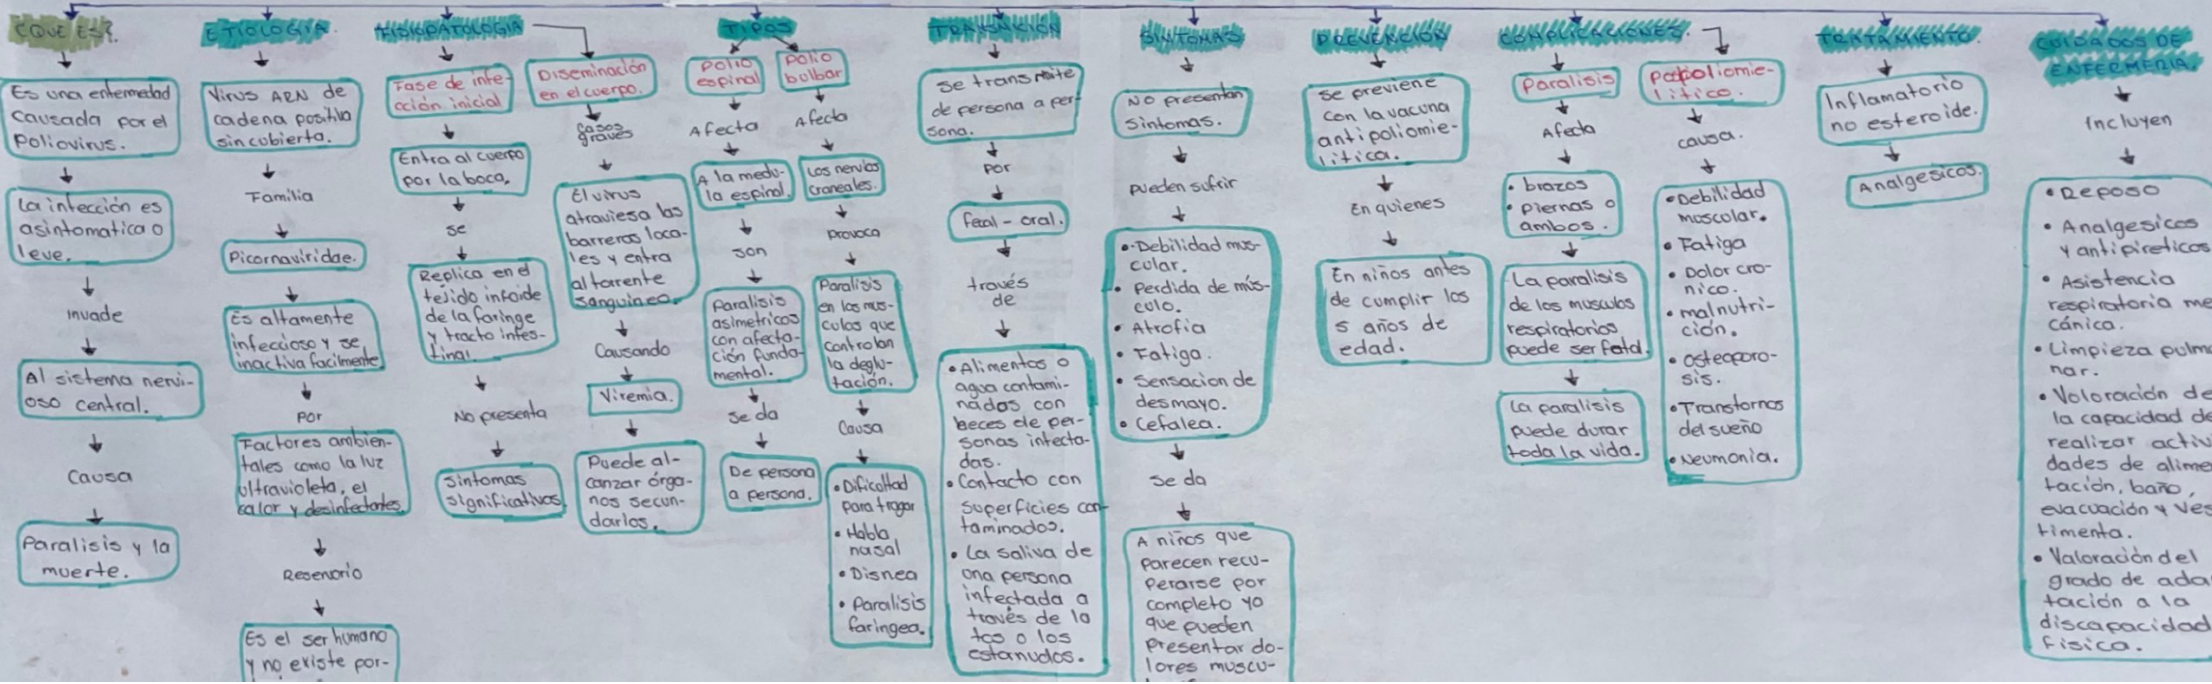 ¿QUE ES?.
Es una enfermedad
causada por el
Poliovirus.
La infección es
asintomatica o
leve.
invade
Al sistema nervi-
oso central.
Causa
Paralisis y la
muerte.
ETIOLOGÍA.
Virus ARN de
cadena positiva
sin cubierta.
Familia
Picornaviridae.
Es altamente
infeccioso y se
inactiva facilmente
Por
Factores ambien-
tales como la luz
ultravioleta, el
calor y desinfectantes
Reservorio
Es el ser humano
y no existe por-
FISIOPATOLOGIA
Fase de infe-
cción inicial
Entra al cuerpo
por la boca.
se
Replica en el
tejido infoide
de la faringe
y tracto intes-
tinal
No presenta
sintomas
significativos
Diseminación
en el cuerpo.
casos
graves
El virus
atraviesa las
barreras loca-
les y entra
al torrente
sanguineo.
Causando
Viremia.
Puede al-
canzar órga-
nos secun-
darios.
TIPOS
Polio
espinal
Afecta
A la medu-
la espinal.
son
Paralisis
asimetricos
con afecta-
ción funda-
mental.
se da
De persona
a persona.
Polio
bulbar
Afecta
Los nervios
craneales.
Provoca
Paralisis
en los mus-
culos que
controlan
la deglu-
tación.
Causa
• Dificultad
para tragar
• Habla
nasal
• Disnea
• Paralisis
faringea.
TRANSMICIÓN
se transmite
de persona a per-
sona.
por
fecal - oral.
través
de
• Alimentos o
agua contami-
nados con
heces de per-
sonas infecta-
das.
• Contacto con
superficies con-
taminados.
• La saliva de
una persona
infectada a
través de la
tos o los
estanudos.
SINTOMAS
No presentan
sintomas.
pueden sufrir
• Debilidad mus-
cular.
• Perdida de mús-
culo.
• Atrofia
• Fatiga.
• Sensacion de
desmayo.
• Cefalea.
se da
A niños que
parecen recu-
perarse por
completo ya
que pueden
presentar do-
lores muscu-
PREVENCIÓN
se previene
con la vacuna
antipoliomie-
litica.
En quienes
En niños antes
de cumplir los
5 años de
edad.
COMPLICACIONES.
Paralisis
Afecta
• brazos
• piernas o
ambos.
La paralisis
de los musculos
respiratorios
puede ser fatal.
La paralisis
puede durar
toda la vida.
litico.
causa.
• Debilidad
muscular.
• Fatiga
• Dolor cro-
nico.
• malnutri-
ción.
• osteoporo-
sis.
• Transtornos
del sueño
• Neumonia.
TRATAMIENTO.
Inflamatorio
no esteroide.
Analgesicos.
CUIDADOS DE
ENFERMERIA.
Incluyen
• Reposo
• Analgesicos
y antipireticos
• Asistencia
respiratoria me
cánica.
• Limpieza pulmo
nar.
• Valoración de
la capacidad de
realizar activi
dades de alime
tación, baño,
evacuación y ves
timenta.
• Valoración del
grado de ada
tación a la
discapacidad
fisica.